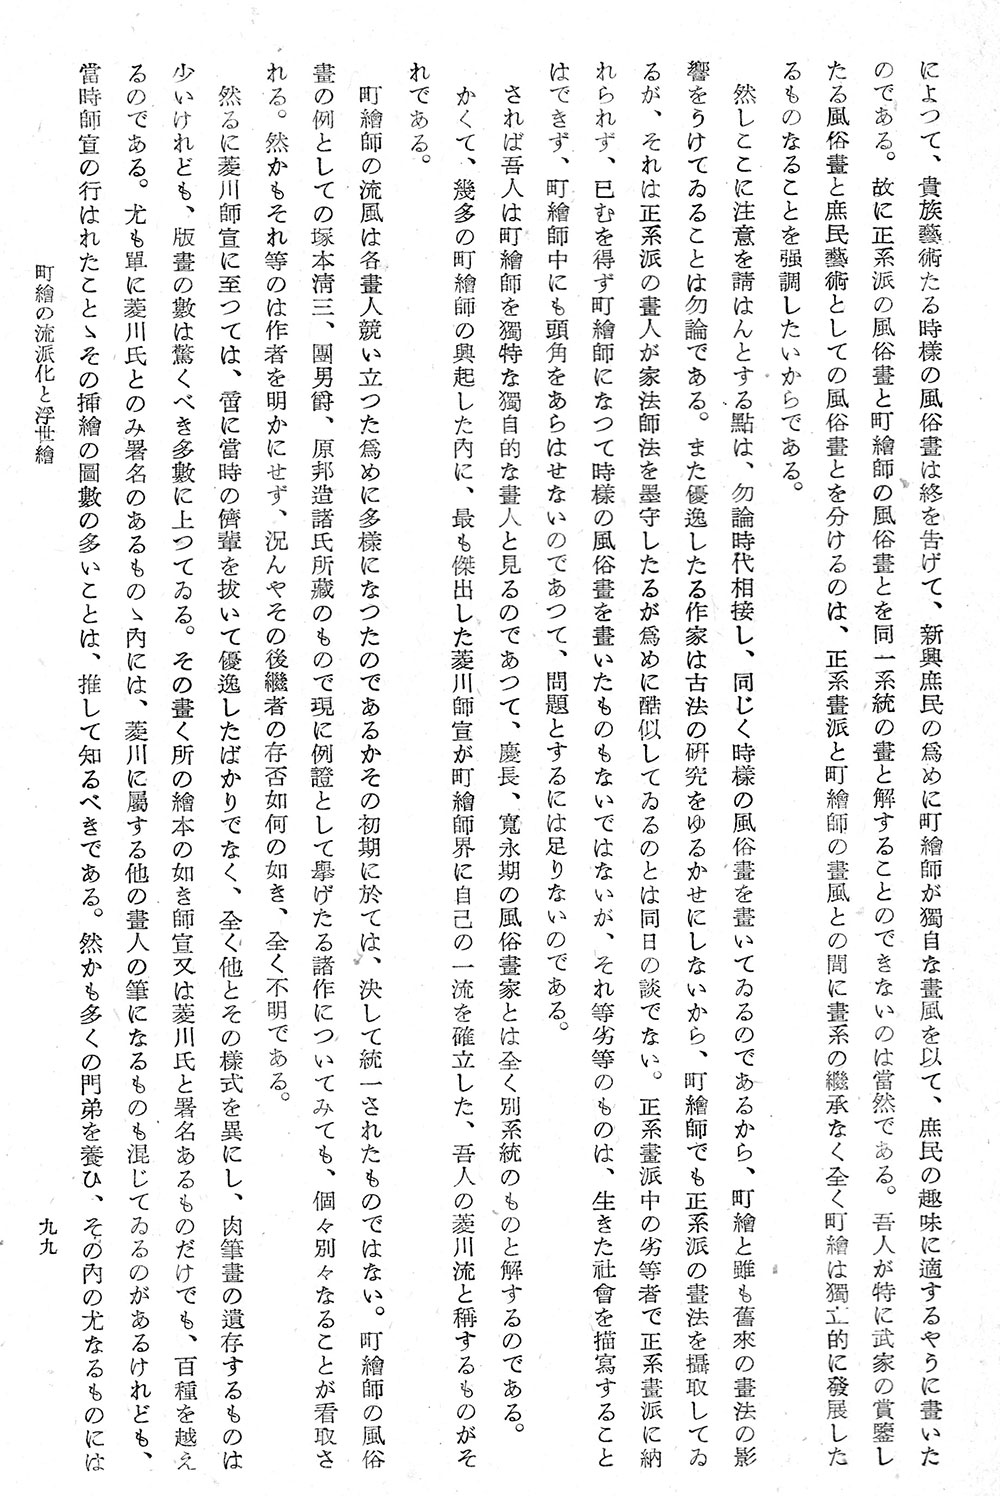 によつて、貴族藝術たる時樣の風俗畫は終を告げて、新興庶民の爲めに町繪師が獨自な畫風を以て、庶民の趣味に適するやうに畫いた
のである。故に正系派の風俗畫と町繪師の風俗畫とを同一系統の畫と解することのできないのは當然である。吾人が特に武家の賞鑒し
たる風俗畫と庶民藝術としての風俗畫とを分けるのは、正系畫派と町繪師の畫風との間に畫系の繼承なく全く町繪は獨立的に發展した
るものなることを强調したいからである。
然しここに注意を請はんとする點は、勿論時代相接し、同じく時樣の風俗畫を畫いてゐるのであるから、町繪と雖も舊來の畫法の影
響をうけてゐることは勿論である。また優逸したる作家は古法の硏究をゆるかせにしないから、町繪師でも正系派の畫法を攝取してゐ
るが、それは正系派の畫人が家法師法を墨守したるが爲めに酷似してゐるのとは同日の談でない。正系畫派中の劣等者で正系畫派に納
れられず、已むを得ず町繪師になつて時樣の風俗畫を畫いたものもないではないが、それ等劣等のものは、生きた社會を描寫すること
はできず、町繪師中にも頭角をあらはせないのであつて、問題とするには足りないのである。
されば吾人は町繪師を獨特な獨自的な畫人と見るのであつて、慶長、寬永期の風俗畫家とは全く別系統のものと解するのである。
かくて、幾多の町繪師の興起した內に、最も傑出した菱川師宣が町繪師界に自己の一流を確立した、吾人の菱川流と稱するものがそ
れである。
町繪師の流風は各畫人競い立つた爲めに多樣になつたのであるかその初期に於ては、決して統一されたものではない。町繪師の風俗
畫の例としての塚本淸三、團男爵、原邦造諸氏所藏のもので現に例證として擧げたる諸作についてみても、個々別々なることが看取さ
れる。然かもそれ等のは作者を明かにせず、況んやその後繼者の存否如何の如き、全く不明である。
然るに菱川師宣に至つては、啻に當時の儕輩を拔いて優逸したばかりでなく、全く他とその樣式を異にし、肉筆畫の遺存するものは
少いけれども、版畫の數は驚くべき多數に上つてゐる。その畫く所の繪本の如き師宣又は菱川氏と署名あるものだけでも、百種を越え
るのである。尤も單に菱川氏とのみ署名のあるものゝ內には、菱川に屬する他の畫人の筆になるものも混じてゐるのがあるけれども、
當時師宣の行はれたことゝその揷繪の圖數の多いことは、推して知るべきである。然かも多くの門弟を養ひ、その內の尤なるものには
町繪の流派化と浮世繪
九九